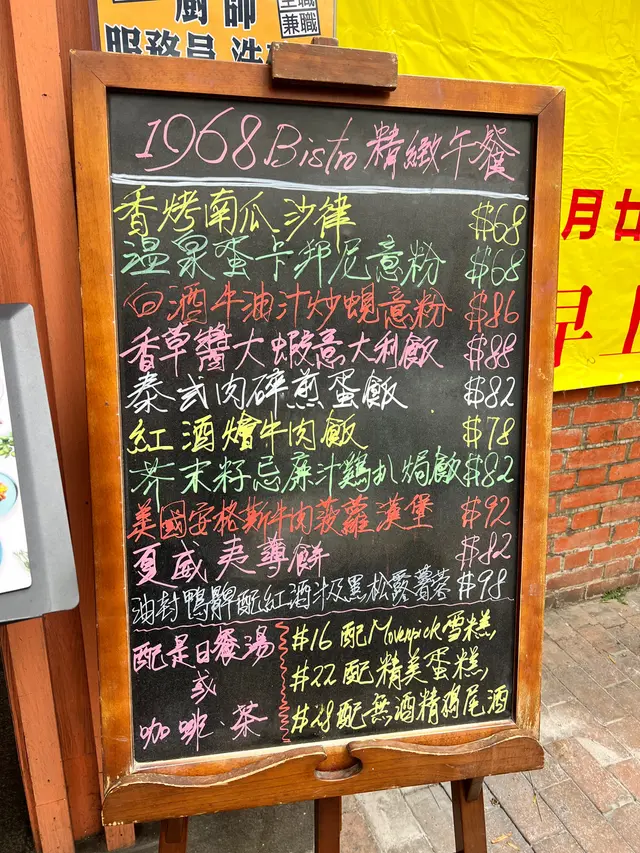 廚師
全職
兼職
服務員 洗
1968 Bistro 精緻午餐
香烤南瓜沙律 $68
溫泉蛋卡邦尼意粉 $68
白酒牛油汁炒蜆意粉 $86
香草醬大蝦意大利飯 $88
泰式肉碎煎蛋飯 $82
紅酒燴牛肉飯 $78
芥末籽忌廉汁鷄扒焗飯 $82
美國安格斯牛肉菠蘿漢堡 $92
夏威夷薄餅 $82
油封鴨髀配紅酒汁及黑松露薯蓉 $98
配是日餐湯
或
咖啡·茶
$16 配 Movenpick 雪糕,
$22 配精美蛋糕,
$28 配無酒精鷄尾酒
月廿
早上